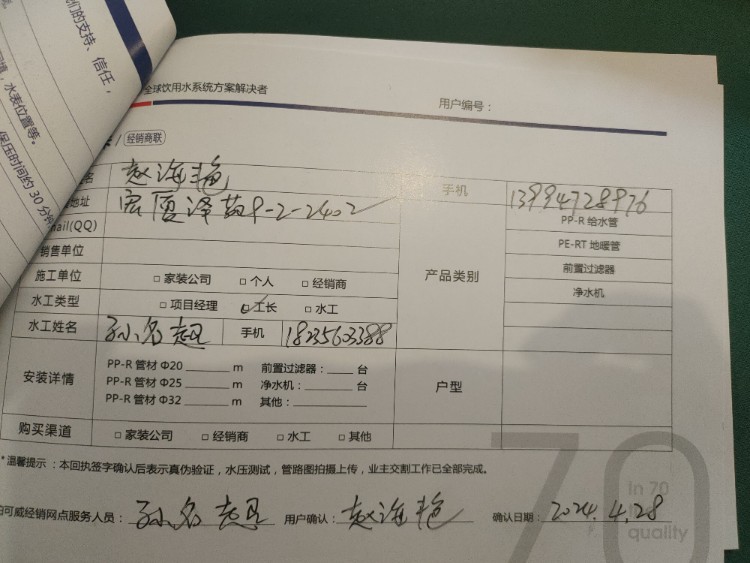 们的支持、信任，
水表位置等。
保压时间约 30 分钟
全球饮用水系统方案解决者
用户编号：
经销商联
名 赵海艳 手机 13994728976
地址 9-2-2402
mail(QQ) 产品类别 PP-R 给水管
PE-RT 地暖管
销售单位 前置过滤器
施工单位 □ 家装公司 □ 个人 □ 经销商 净水机
水工类型 □ 项目经理 ☑ 工长 □ 水工
水工姓名 孙名超 手机 18235623388
安装详情 PP-R 管材 Φ20 ______ m 前置过滤器：____ 台 户型
PP-R 管材 Φ25 ______ m 净水机：______ 台
PP-R 管材 Φ32 ______ m 其他：__________
购买渠道 □ 家装公司 □ 经销商 □ 水工 □ 其他
*温馨提示：本回执签字确认后表示真伪验证，水压测试，管路图拍摄上传，业主交割工作已全部完成。
70
In 70
quality
伯可威经销网点服务人员：孙名超 用户确认：赵海艳 确认日期：2024.4.28